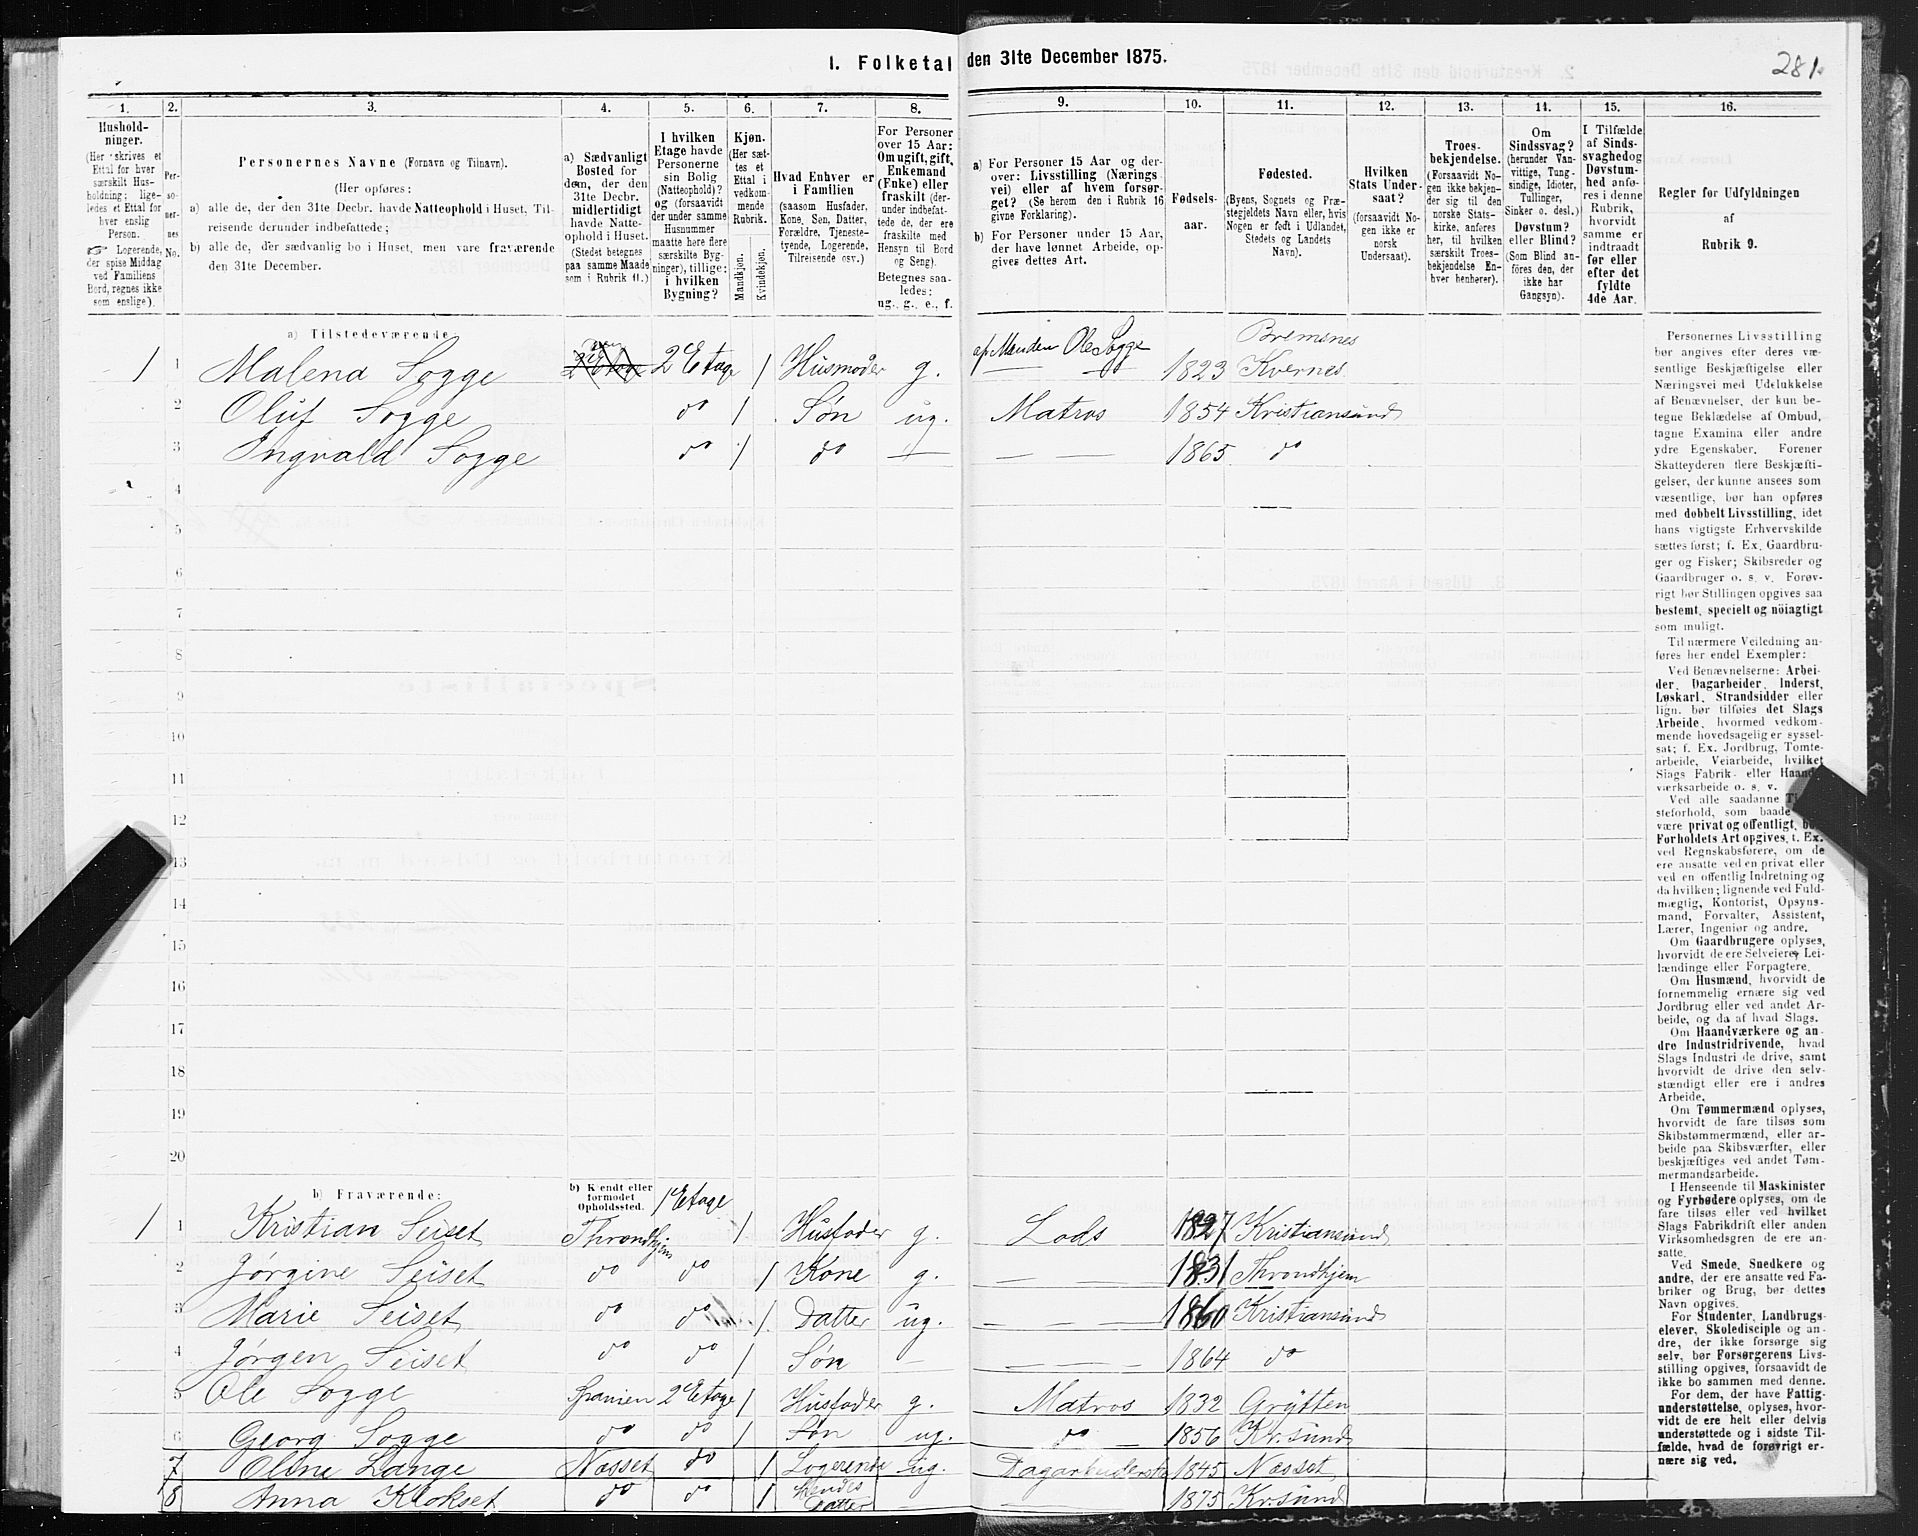 I. Folketal den 31te December 1875.
281.
1. 2. 3. 4. 5. 6. 7. 8. 9. 10. 11. 12. 13. 14. 15. 16.
Hushold-
ninger.
(Her skrives et
Ettal for hver
særskilt Hus-
holdning; lige-
ledes et Ettal for
hver enslig
Person.
☞ Logerende,
der spise Middag
ved Familiens
Bord, regnes ikke
som enslige).
Per-
so-
ner-
nes
No.
Personernes Navne (Fornavn og Tilnavn).
(Her opføres:
a) alle de, der den 31te Decbr. havde Natteophold i Huset, Til-
reisende derunder indbefattede;
b) alle de, der sædvanlig bo i Huset, men vare fraværende
den 31te December.
a) Sædvanligt
Bosted for
dem, der den
31te Decbr.
midlertidigt
havde Natte-
ophold i Huset.
(Stedet betegnes
paa samme Maade
som i Rubrik 11.)
I hvilken
Etage havde
Personerne
sin Bolig
(Natteophold)?
og (forsaavidt
der under samme
Husnummer
maatte høre flere
særskilte Byg-
ninger), tillige:
i hvilken
Bygning?
Kjøn.
(Her sæt-
tes et
Ettal i
vedkom-
mende
Rubrik.
Mandkjøn.
Kvindekjøn.
Hvad Enhver er
i Familien
(saasom Husfader,
Kone, Søn, Datter,
Forældre, Tjeneste-
tyende, Logerende,
Tilreisende osv.)
For Personer
over 15 Aar:
Om ugift, gift,
Enkemand
(Enke) eller
fraskilt (der-
under indbefat-
tede de, der ere
fraskilte med
Hensyn til Bord
og Seng).
Betegnes saa-
ledes:
ug., g., e., f.
a) For Personer 15 Aar og der-
over: Livsstilling (Nærings
vei) eller af hvem forsør-
get? (Se herom den i Rubrik 16
givne Forklaring).
b) For Personer under 15 Aar,
der have lønnet Arbeide, op-
gives dettes Art.
Fødsels-
aar.
Fødested.
(Byens, Sognets og Præ-
stegjeldets Navn eller, hvis
Nogen er født i Udlandet,
Stedets og Landets
Navn).
Hvilken
Stats Under-
saat?
(forsaavidt No-
gen ikke er
norsk
Undersaat).
Troes-
bekjendelse.
(Forsaavidt No-
gen ikke bekjen-
der sig til den
norske Stats-
kirke, anføres
her, til hvilken
særskilt Troes-
bekjendelse En-
hver henhører).
Om
Sindssvag?
(herunder Van-
vittige, Tung-
sindige, Idioter,
Tullinger,
Sinker o. desl.)
Døvstum?
eller Blind?
(Som Blind an-
føres den, der
ikke har
Gangsyn).
I Tilfælde
af Sinds-
svaghed og
Døvstum-
hed anfø-
res i denne
Rubrik,
hvorvidt
samme er
indtraadt
før eller
efter det
fyldte
4de Aar.
Regler for Udfyldningen
af
Rubrik 9.
a) Tilstedeværende:
1 1 Malena Sogge 2 Etage 1 Husmoder g. af Manden Ole Sogge 1823 Bremsnes Kvernes.
2 Oluf Sogge do 1 Søn ug. Matros 1854 Kristiansund
3 Ingvald Sogge do 1 do — — — 1865 do
4
5
6
7
8
9
10
11
12
13
14
15
16
17
18
19
20
b) Fraværende:
b) Kendt eller
formodet
Opholdssted.
1 1 Kristian Seiset Throndhjem 1 Etage 1 Husfader g. Lods 1827 Kristiansund
2 Jørgine Seiset do do 1 Kone g. — 1831 Throndhjem
3 Marie Seiset do do 1 Datter ug. — — — 1860 Kristiansund
4 Jørgen Seiset do do 1 Søn — — — — 1864 do
5 Ole Sogge Spanien 2 Etage 1 Husfader g. Matros 1832 Grytten
6 Georg Sogge do do 1 Søn ug. do — 1856 Kr.sund
7 Oline Lange Næsset do 1 Logerende ug. 1845 Næsset
8 Anna Klokset do do 1 hendes Datter — — 1875 Kr.sund
Personernes Livsstilling
bør angives efter deres væ-
sentlige Beskjæftigelse eller
Næringsvei med Udelukkelse
af Benævnelser, der kun be-
tegne Beklædelse af Ombud,
tagne Examina eller andre
ydre Egenskaber. Forener
Skatteyderen flere Beskjæfti-
gelser, der kunne ansees som
væsentlige, bør han opføres
med dobbelt Livsstilling, idet
hans vigtigste Erhvervskilde
sættes først; f. Ex. Gaardbru-
ger og Fisker; Skibsreder og
Gaardbruger o. s. v. Forøv-
rigt bør Stillingen opgives saa
bestemt, specielt og nöiagtigt
som muligt.
Til nærmere Veiledning an-
føres her endel Exempler:
Ved Benævnelserne: Arbei-
der, Dagarbeider, Inderst,
Løskarl, Strandsidder eller
lign. bør tilføies det Slags
Arbeide, hvormed vedkom-
mende hovedsagelig er syssel-
sat; f. Ex. Jordbrug, Tomte-
arbeide, Veiarbeide, hvilket
Slags Fabrik- eller Haand-
værksarbeide o. s. v.
Ved alle saadanne
steforhold, som baade
være privat og offentligt,
Forholdets Art opgives, t. Ex.
ved Regnskabsførere, om de
ere ansatte ved en privat eller
ved en offentlig Indretning og
da hvilken; lignende ved Fuld-
mægtig, Kontorist, Opsyns-
mand, Forvalter, Assistent,
Lærer, Ingeniør og andre.
Om Gaardbrugere oplyses,
hvorvidt de ere Selveiere, Lei-
lændinge eller Forpagtere.
Om Husmænd, hvorvidt de
fornemmelig ernære sig ved
Jordbrug eller ved andet Ar-
beide, og da af hvad Slags.
Om Haandværkere og an-
dre Industridrivende, hvad
Slags Industri de drive, samt
hvorvidt de drive den selv-
stændigt eller ere i andres
Arbeide.
Om Tømmermænd oplyses,
hvorvidt de fare tilsøs som
Skibstømmermænd, eller ar-
beide paa Skibsværfter, eller
beskjæftiges ved andet Tøm-
mermandsarbeide.
I Henseende til Maskinister
og Fyrbødere oplyses, om de
fare tilsøs eller ved hvilket
Slags Fabrikdrift eller anden
Virksomhedsgren de ere an-
satte.
Ved Smede, Snedkere og
andre, der ere ansatte ved Fa-
briker og Brug, bør dettes
Navn opgives.
For Studenter, Landbrugs-
elever, Skoledisciple og an-
dre, der ikke forsørge sig
selv, bør Forsørgerens Livs-
stilling opgives, forsaavidt de
ikke bo sammen med denne.
For dem, der have Fattig-
understøttelse, oplyses, hvor-
vidt de ere helt eller delvis
understøttede og i sidste Til-
fælde, hvad de forøvrigt er-
nære sig ved.